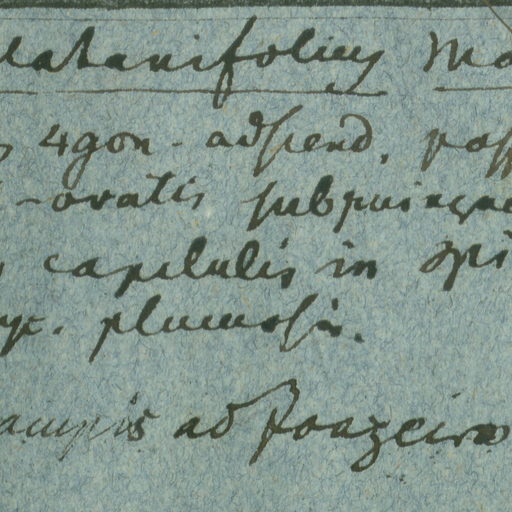 latanifolius Ma
4gon. adscend.
-ovatis subquinque
capitulis in spi
yc. plumosis.
campis ad Joazeiro